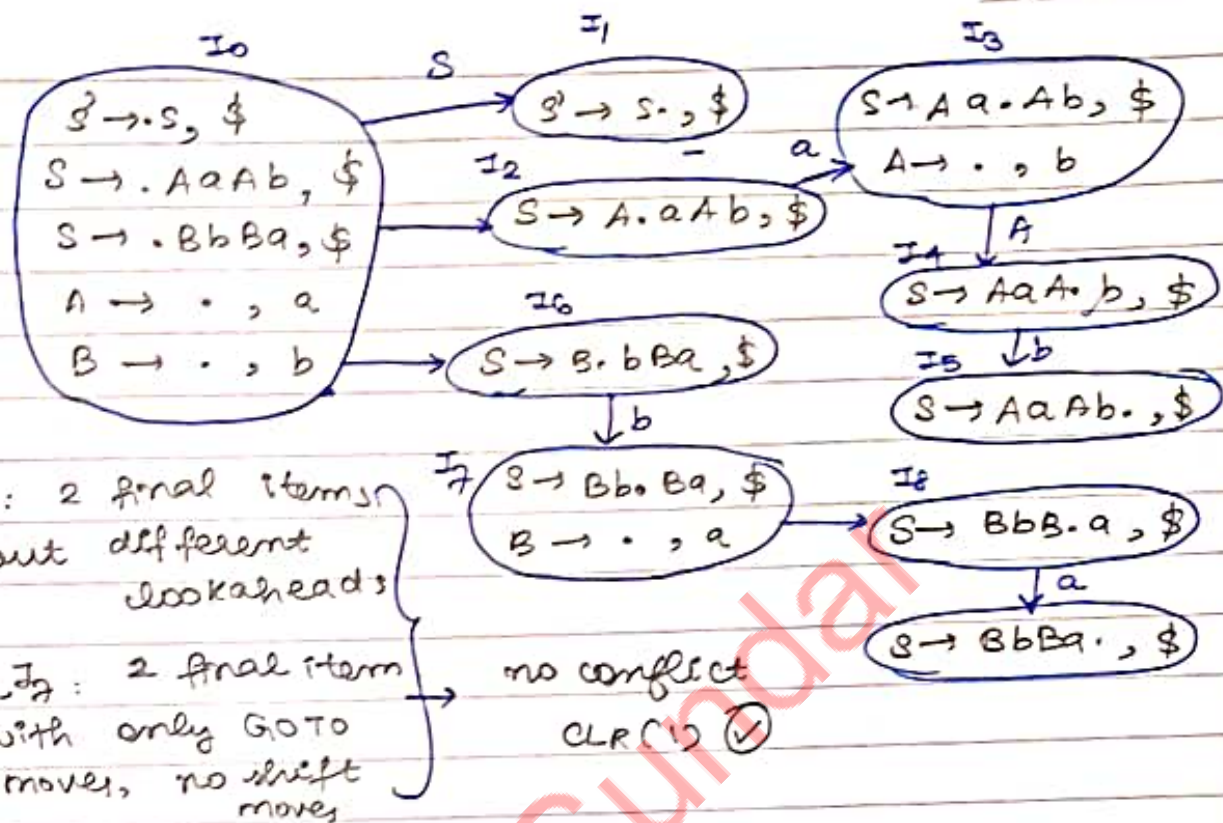 I0
S' → .S, $
S → .AaAb, $
S → .BbBa, $
A → . , a
B → . , b
S
I1
S' → S. , $
I2
S → A.aAb, $
a
I3
S → Aa.Ab, $
A → . , b
A
I4
S → AaA.b, $
b
I5
S → AaAb. , $
I6
S → B.bBa , $
b
I7
S → Bb.Ba, $
B → . , a
I8
S → BbB.a , $
a
S → BbBa. , $
: 2 final items,
but different
lookaheads
, I7 : 2 final item
with only GOTO
moves, no shift
moves
no conflict
CLR(1) ✓
Sundar